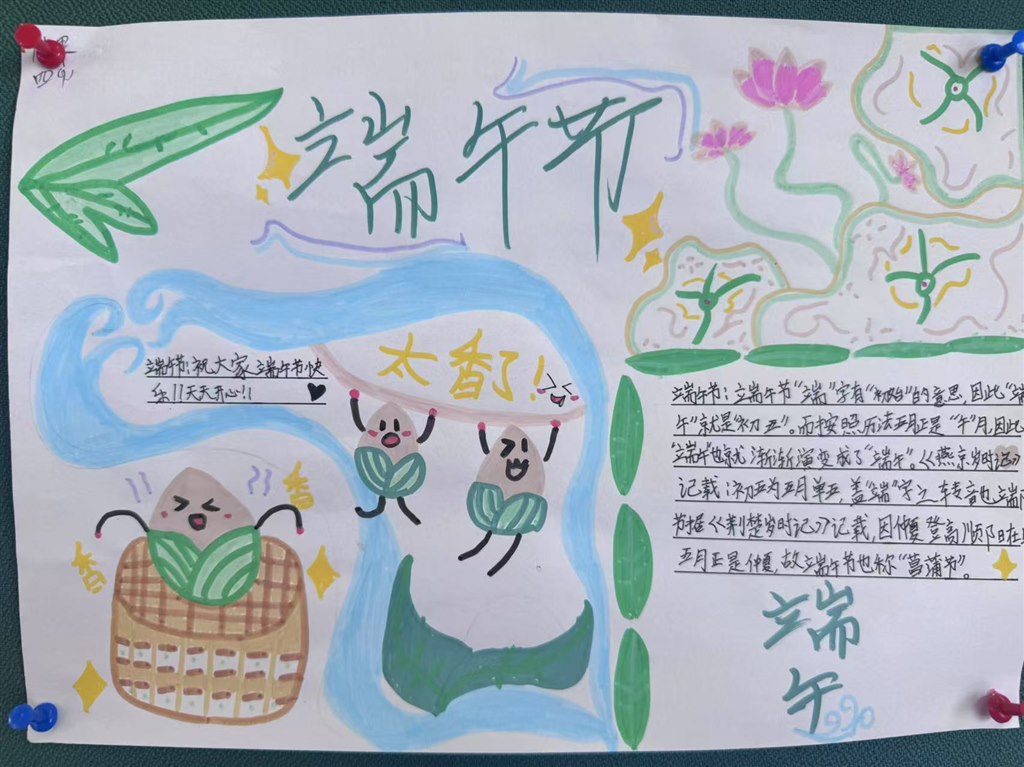 端午节
太香了！
端午节：祝大家端午节快
乐！！天天开心！！
香
香
端午节：立端午节“端”字有“初始”的意思，因此“端
午”就是“初五”。而按照历法五月正是“午”月，因此
“端午”也就渐渐演变成了“端午”。《燕京岁时记》
记载：初五为五月单五，盖“端”字之转音也，端
节据《荆楚岁时记》记载，因仲夏登高，顺阳在
五月正是仲夏，故端午节也称“菖蒲节”。
端
午